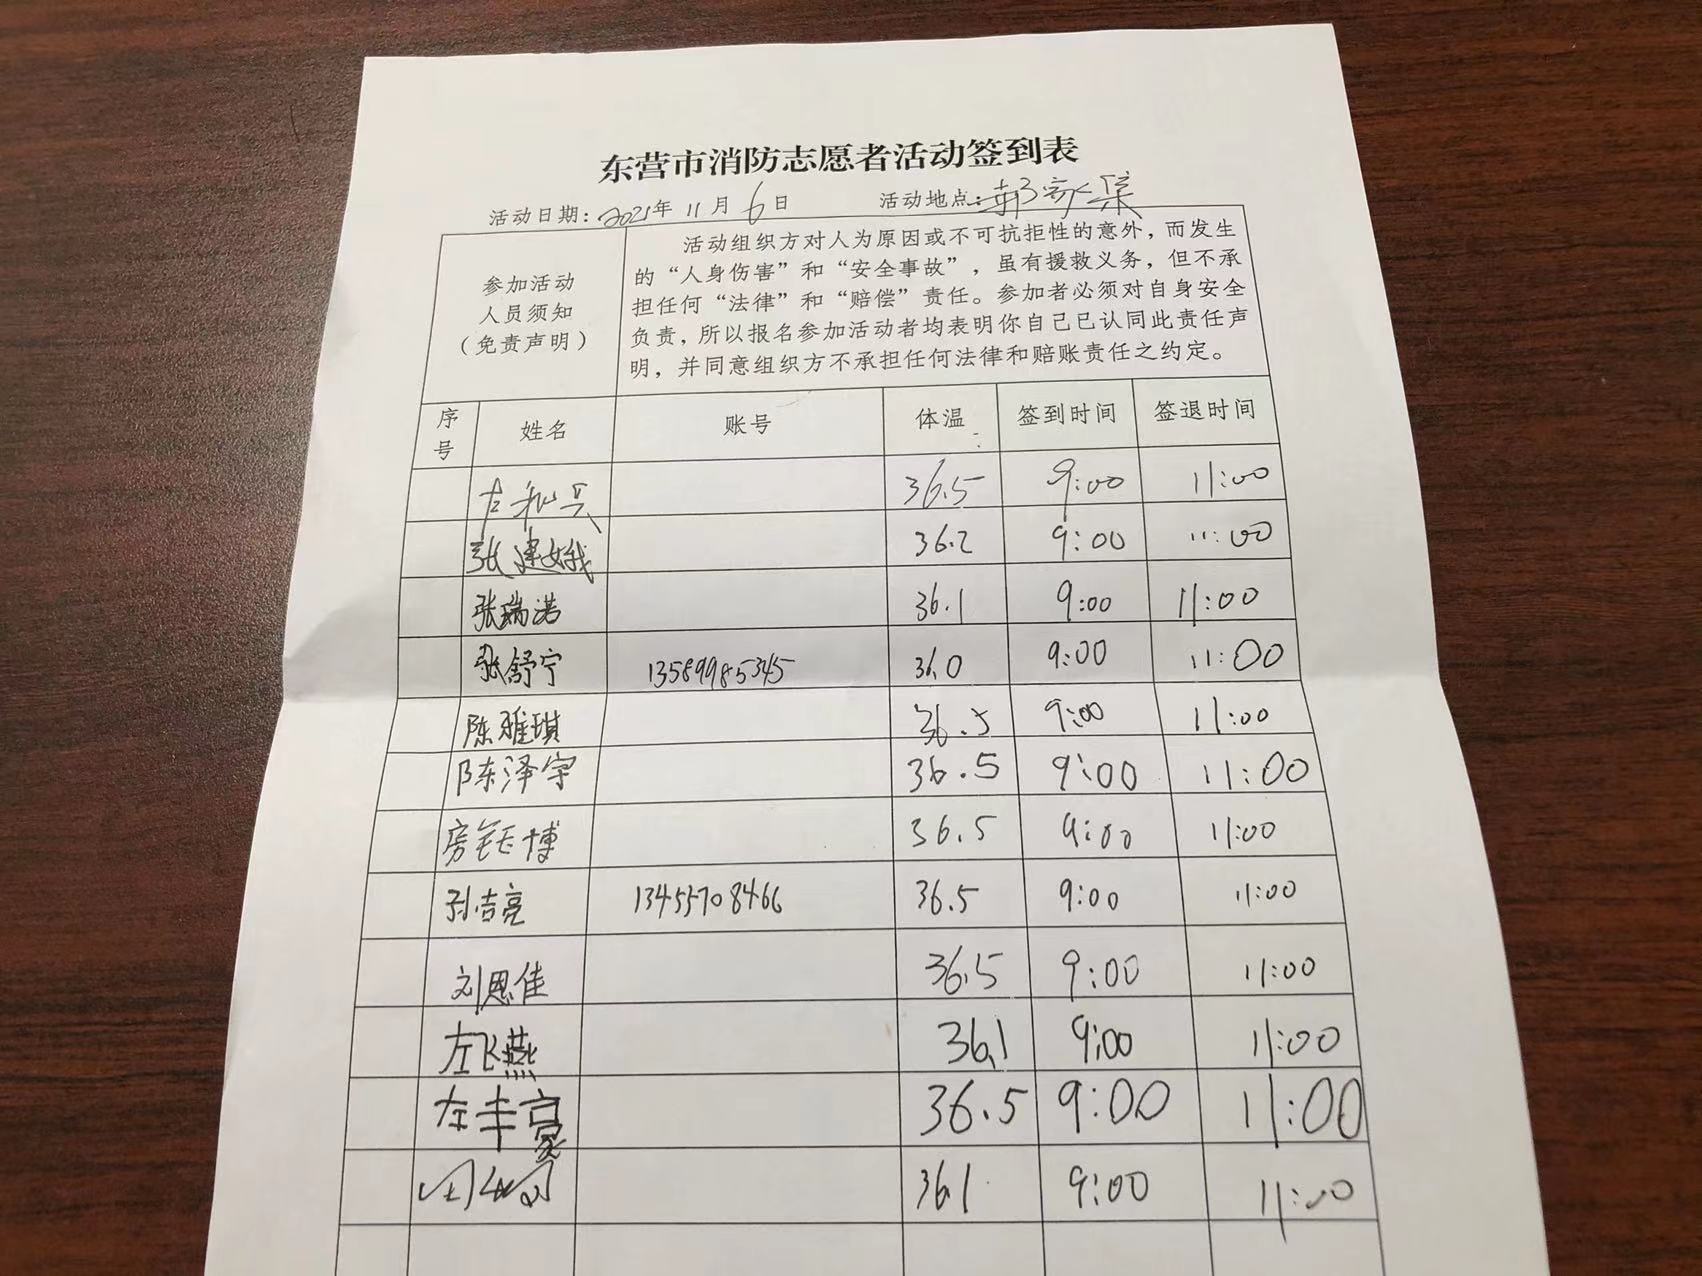 东营市消防志愿者活动签到表
活动日期：2021年11月6日 活动地点：郝家集
参加活动
人员须知
（免责声明）
活动组织方对人为原因或不可抗拒性的意外，而发生
的“人身伤害”和“安全事故”，虽有援救义务，但不承
担任何“法律”和“赔偿”责任。参加者必须对自身安全
负责，所以报名参加活动者均表明你自己已认同此责任声
明，并同意组织方不承担任何法律和赔账责任之约定。
序号 姓名 账号 体温 签到时间 签退时间
36.5 9:00 11:00
张建娥 36.2 9:00 11:00
张瑞诺 36.1 9:00 11:00
张舒宁 13589985345 36.0 9:00 11:00
陈雅琪 36.5 9:00 11:00
陈泽宇 36.5 9:00 11:00
房钰博 36.5 9:00 11:00
孙吉亮 13455708466 36.5 9:00 11:00
刘恩佳 36.5 9:00 11:00
左飞燕 36.1 9:00 11:00
左丰豪 36.5 9:00 11:00
36.1 9:00 11:00